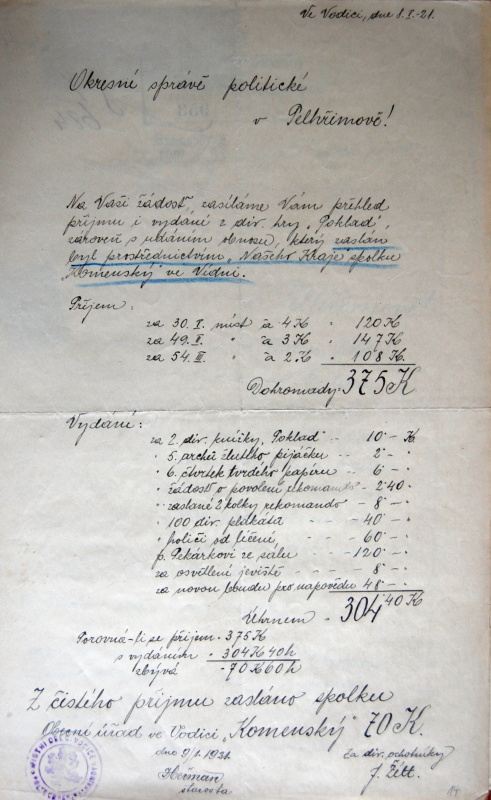 Ve Vodici, dne 8.I.-21.
Okresní správě politické
v Pelhřimově!
Na Vaši žádost, zasíláme Vám přehled
příjmu i vydání z div. hry „Poklad",
zároveň s udáním obnosu, který zaslán
byl prostřednictvím „Našeho Kraje" spolku
„Komenský" ve Vídni.
Příjem:
za 30. I. míst à 4 K " 120 K
za 49. II. " à 3 K " 147 K
za 54. III. " à 2 K " 108 K.
Dohromady: 375 K
Vydání:
za 2. div. knížky, Poklad - - 10 - K
" 5. archů žlutého pijáčku - - 2 - "
" 6. čtvrtek tvrdého papíru - - 6 - "
" žádost o povolení rekomando - 2·40
" zaslané 2 kolky rekomando - 8 - "
" 100 div. plakátů - - - 40 - "
" poliči od líčení - - - 60 - "
p. Pekárkovi ze sálu - - - 120 - "
za osvětlení jeviště - - - 8 - "
za novou boudu pro nápovědu 48 - "
Úhrnem - 304·40 K
Porovná-li se příjem - 375 K
s vydáním - 304 K 40 h
zbývá - 70 K 60 h
Z čistého příjmu zasláno spolku
„Komenský" 70 K.
Obecní úřad ve Vodici,
dno 9/I. 1921.
Heřman
starosta.
za div. ochotníky
J. Žitt.